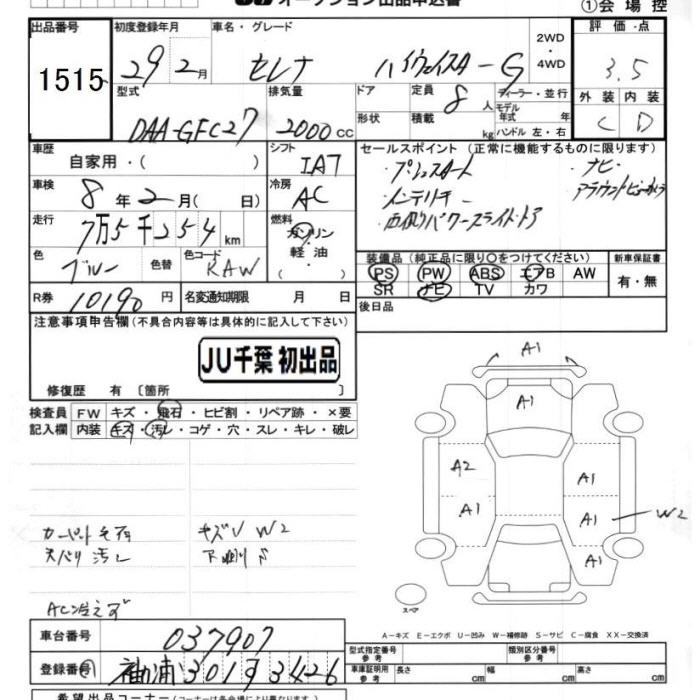 オークション出品申込書
①会場控
出品番号
1515
初度登録年月
29 2月
車名・グレード
セレナ ハイウェイスターG
2WD
・
4WD
評価・点
3.5
型式
DAA-GFC27
排気量
2000 CC
ドア
形状
定員
8 人
積載
kg
ディーラー・並行
モデル
年式 年
ハンドル 左・右
外装 内装
C D
車歴
自家用・( )
シフト
IAT
セールスポイント (正常に機能するものに限ります)
・プッシュスタート
・ナビ
・インテリキー
・アラウンドビューカメラ
・両側パワースライドドア
車検
8年2月( 日)
冷房
AC
走行
7万5千254km
燃料
ガソリン
・
軽油
色
ブルー
色替
色コード
RAW
装備品 (純正品に限り○をつけてください)
PS PW ABS エアB AW
SR ナビ TV カワ
新車保証書
有・無
R券
10190円
名変通知期限 月 日
後日品
注意事項申告欄 (不具合内容等は具体的に記入して下さい)
JU千葉 初出品
修復歴 有 〔箇所 〕
検査員
記入欄
FW キズ・飛石・ヒビ割・リペア跡・×要
内装 キズ・汚レ・コゲ・穴・スレ・キレ・破レ
キズV W2
天バリ汚レ
下廻りS
AC冷えず
A1
A1
A2
A1
A1
A1
W2
A1
スペア
A－キズ E－エクボ U－凹み W－補修跡 S－サビ C－腐食 XX－交換済
車台番号
037907
登録番号
袖ヶ浦 301 す 3426
型式指定番号
参考
類別区分番号
参考
車庫証明用
参考
長さ cm
幅 cm
高さ cm
希望出品コーナー (コーナーは各会場により異なります)